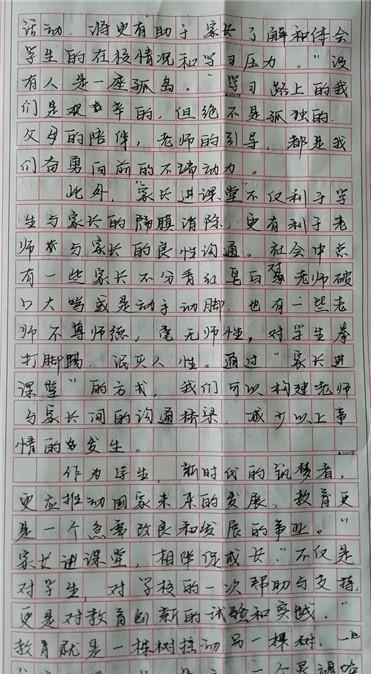 活动，将更有助于家长了解和体会
学生的在校情况和学习压力。"没
有人是一座孤岛。"学习路上的我
们是艰辛的，但绝不是孤独的，
父母的陪伴，老师的引导，都是我
们奋勇向前的不竭动力。
此外，"家长进课堂"不仅利于学
生与家长的隔膜消除，更有利于老
师与家长的良性沟通。社会中总
有一些家长不分青红皂白 老师破
口大骂或是动手动脚，也有一些老
师不尊师德，毫无师性，对学生拳
打脚踢，泯灭人性。通过"家长进
课堂"的方式，我们可以构建老师
与家长间的沟通桥梁，减少以上事
情的发生。
作为学生，新时代的筑梦者，
更应推动国家未来的发展，教育更
是一个急需改良和发展的事业。"
家长进课堂，相伴促成长"不仅是
对学生，对学校的一次帮助与支持，
更是对教育创新的试验和实践。"
教育就是一棵树摇动另一棵树，一
一个灵魂